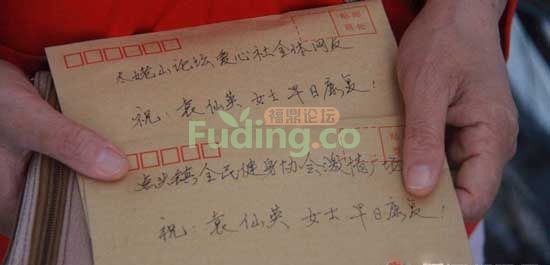 贴邮
票处
太姥山论坛爱心社全体网友
祝：袁仙英女士早日康复！
福鼎论坛
Fuding.co
点头镇全民健身协会激情广场
祝：袁仙英女士早日康复！